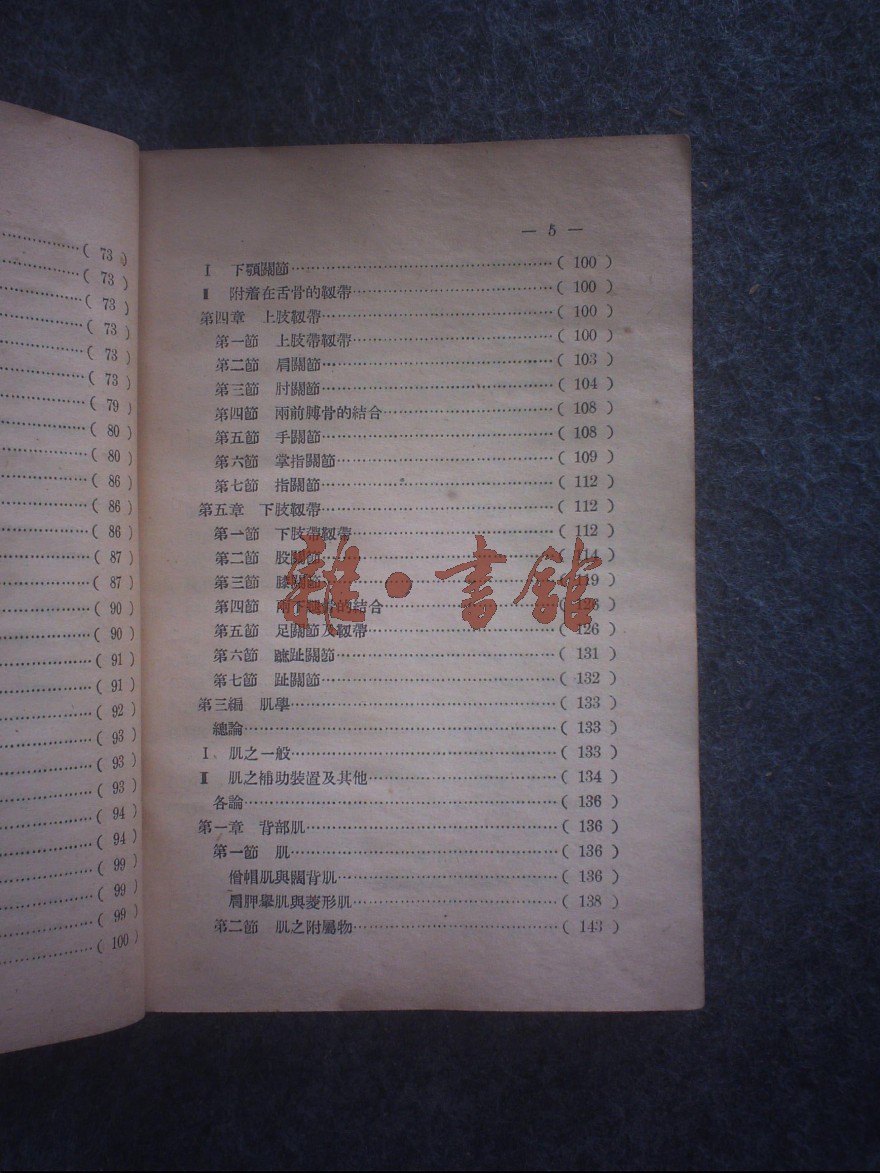 ( 73 )
( 73 )
( 73 )
( 73 )
( 73 )
( 73 )
( 79 )
( 80 )
( 80 )
( 86 )
( 86 )
( 86 )
( 87 )
( 87 )
( 90 )
( 90 )
( 91 )
( 91 )
( 92 )
( 93 )
( 93 )
( 93 )
( 94 )
( 94 )
( 99 )
( 99 )
( 99 )
( 100 )
— 5 —
Ⅰ 下顎關節……( 100 )
Ⅱ 附着在舌骨的靱帶……( 100 )
第四章 上肢靱帶……( 100 )
第一節 上肢帶靱帶……( 100 )
第二節 肩關節……( 103 )
第三節 肘關節……( 104 )
第四節 兩前膊骨的結合……( 108 )
第五節 手關節……( 108 )
第六節 掌指關節……( 109 )
第七節 指關節……( 112 )
第五章 下肢靱帶……( 112 )
第一節 下肢帶靱帶……( 112 )
第二節 股關節……( 114 )
第三節 膝關節……( 119 )
第四節 兩下腿骨的結合……( 126 )
第五節 足關節及靱帶……( 126 )
第六節 蹠趾關節……( 131 )
第七節 趾關節……( 132 )
第三編 肌學……( 133 )
總論……( 133 )
Ⅰ 肌之一般……( 133 )
Ⅱ 肌之補助裝置及其他……( 134 )
各論……( 136 )
第一章 背部肌……( 136 )
第一節 肌……( 136 )
僧帽肌與闊背肌……( 136 )
肩胛舉肌與菱形肌……( 138 )
第二節 肌之附屬物……( 143 )
雜·書館